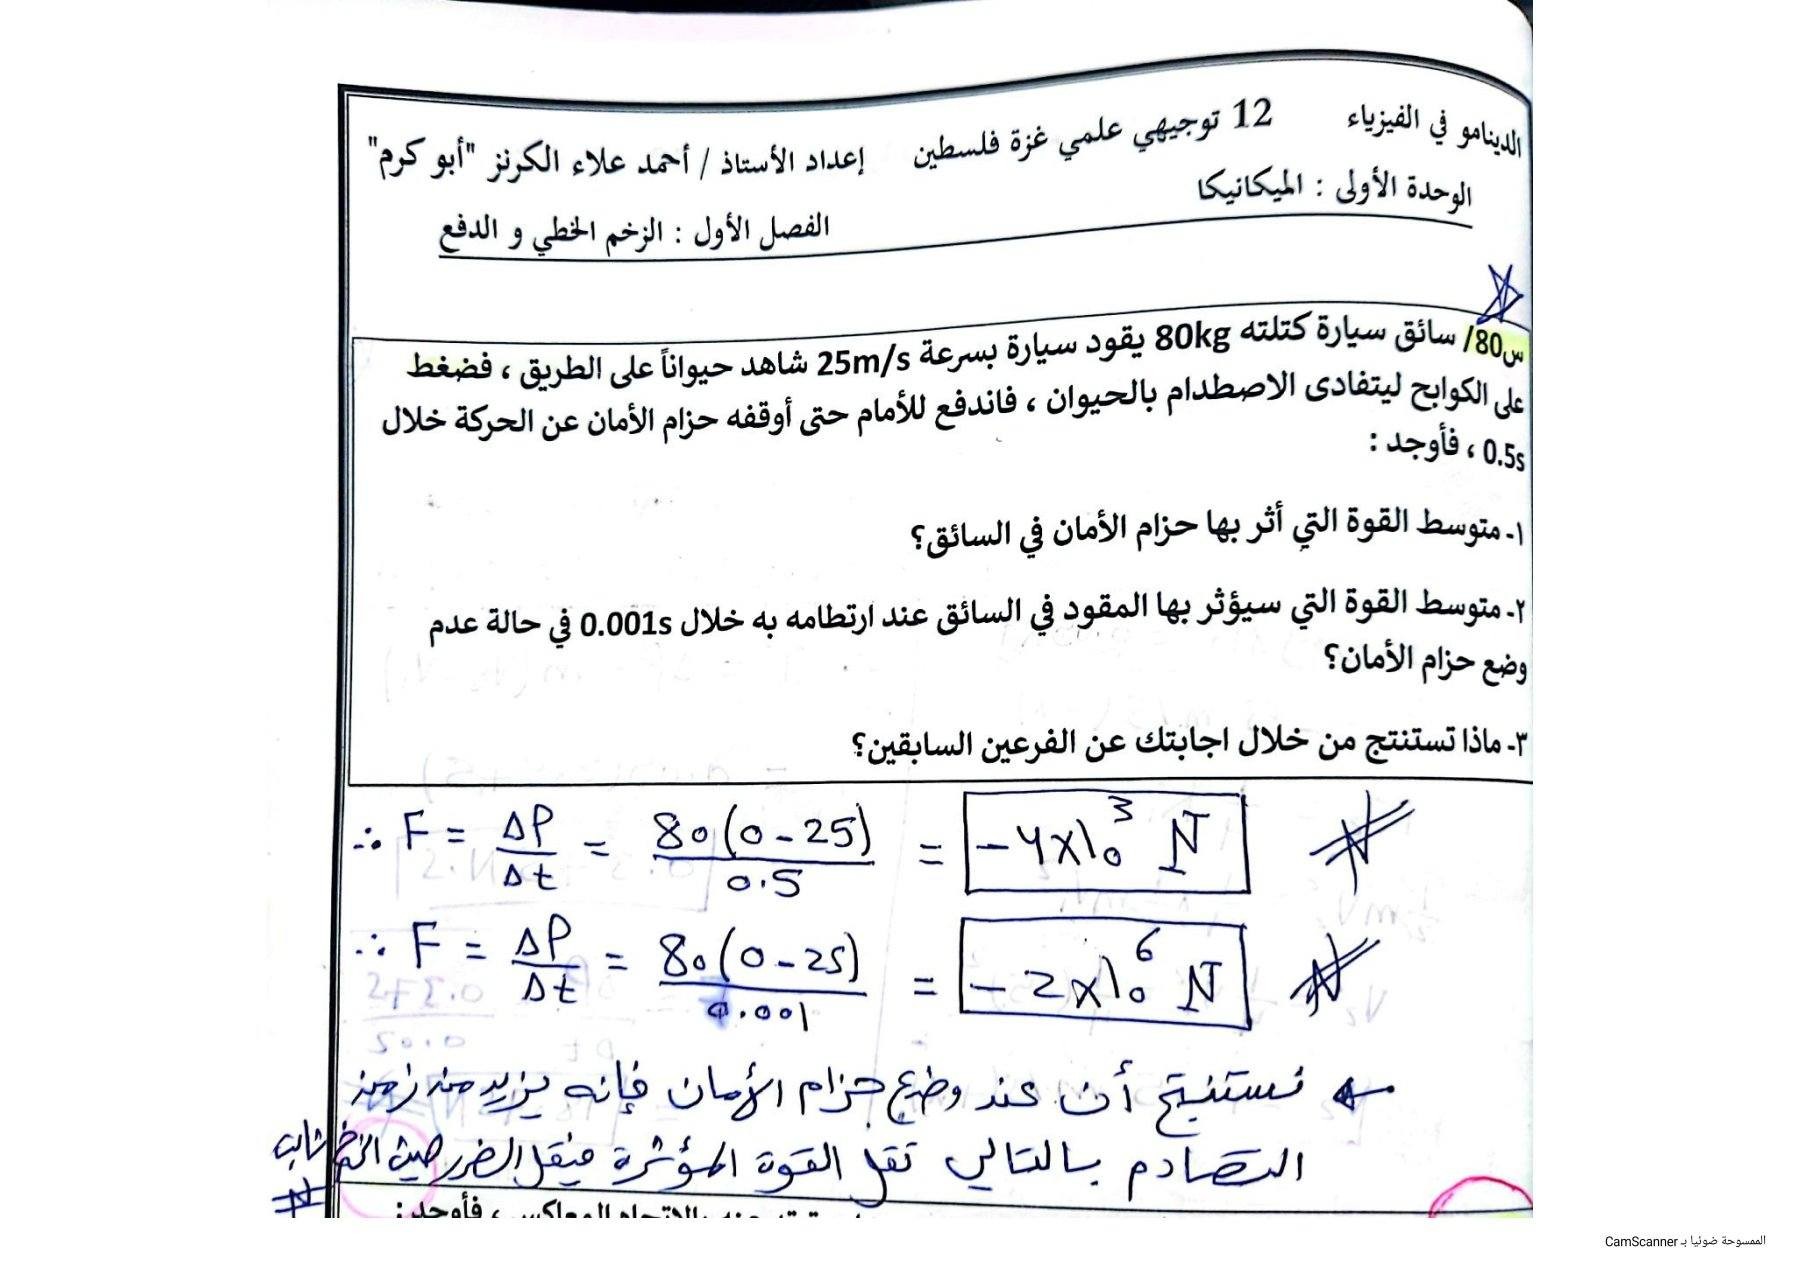 الدينامو في الفيزياء 12 توجيهي علمي غزة فلسطين إعداد الأستاذ / أحمد علاء الكرنز "أبو كرم"
الوحدة الأولى : الميكانيكا الفصل الأول : الزخم الخطي و الدفع
س80/ سائق سيارة كتلته 80kg يقود سيارة بسرعة 25m/s شاهد حيواناً على الطريق ، فضغط
على الكوابح ليتفادى الاصطدام بالحيوان ، فاندفع للأمام حتى أوقفه حزام الأمان عن الحركة خلال
0.5s ، فأوجد :
١- متوسط القوة التي أثر بها حزام الأمان في السائق؟
٢- متوسط القوة التي سيؤثر بها المقود في السائق عند ارتطامه به خلال 0.001s في حالة عدم
وضع حزام الأمان؟
٣- ماذا تستنتج من خلال اجابتك عن الفرعين السابقين؟
∴ F = ΔP/Δt = 80(0-25)/0.5 = -4x10³ N
∴ F = ΔP/Δt = 80(0-25)/0.001 = -2x10⁶ N
← نستنتج أن عند وضع حزام الأمان فإنه يزيد من زمن
التصادم بالتالي تقل القوة المؤثرة فيقل الضرر حيث الزخم ثابت
بالاتجاه المعاكس ، فأوجد :
الممسوحة ضوئيا بـ CamScanner